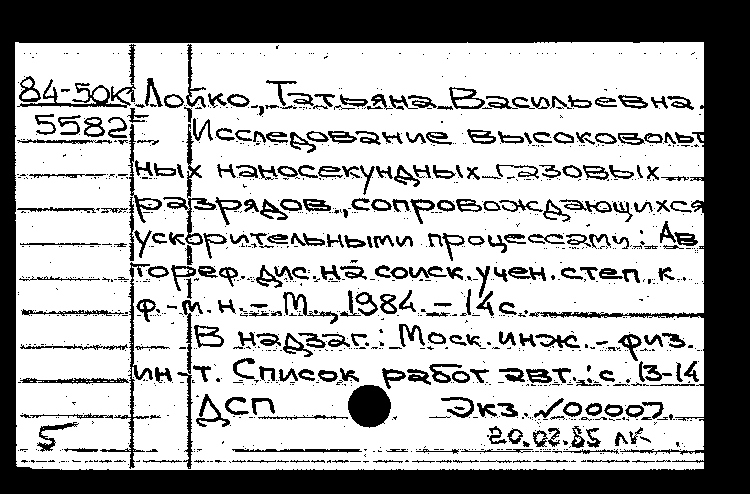 84-50к Лойко, Татьяна Васильевна.
5582 Исследование высоковольт
ных наносекундных газовых
разрядов, сопровождающихся
ускорительными процессами: Ав
тореф. дис. на соиск. учен. степ. к.
ф.-м. н. - М., 1984. - 14 с.
В надзаг.: Моск. инж.-физ.
ин-т. Список работ авт.: с. 13-14
ДСП Экз. №00007.
5 20.02.85 лк